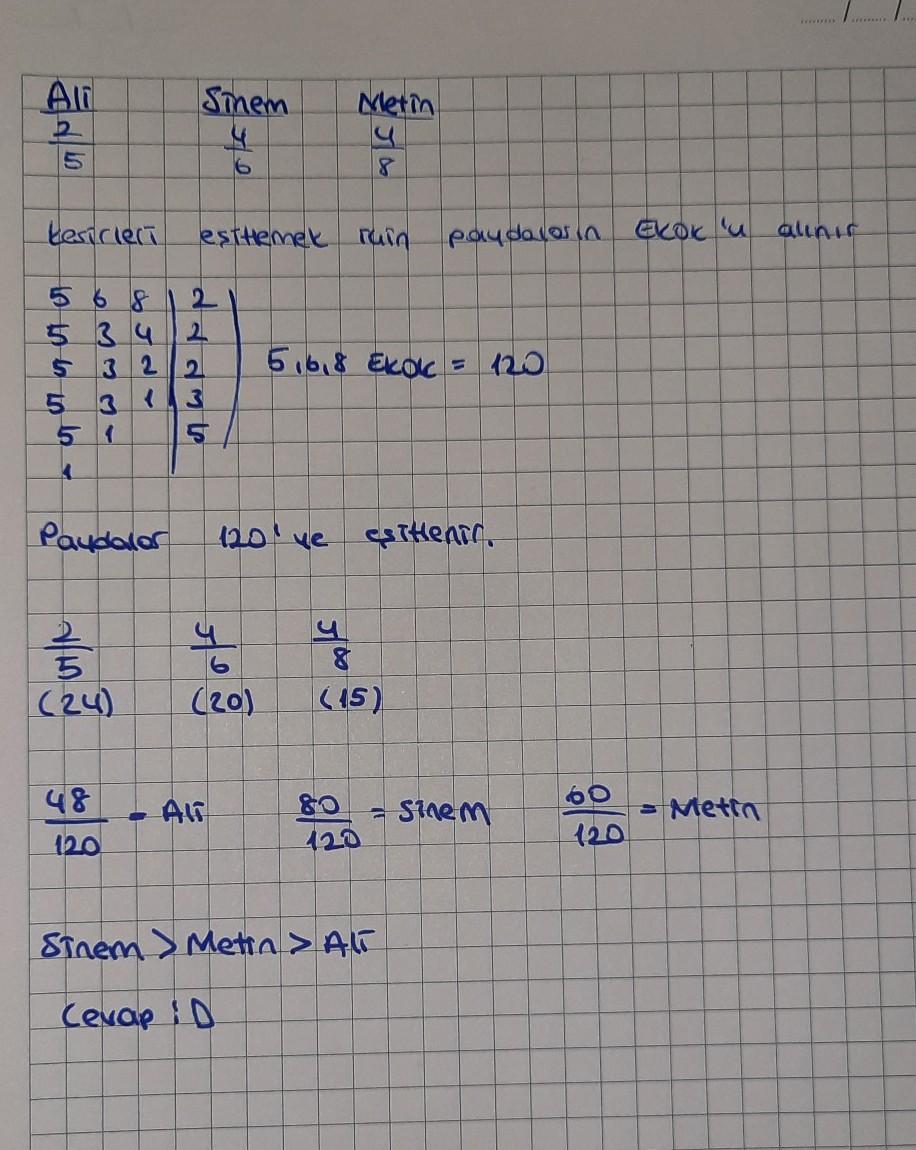 Ali Sinem Metin
2/5 4/6 4/8
kesirleri eşitlemek için paydaların Ekok'u alınır
5 6 8 | 2
5 3 4 | 2
5 3 2 | 2 5,6,8 Ekok = 120
5 3 1 | 3
5 1 | 5
1
Paydalar 120'ye eşitlenir.
2/5 4/6 4/8
(24) (20) (15)
48/120 - Ali 80/120 = Sinem 60/120 = Metin
Sinem > Metin > Ali
Cevap : D